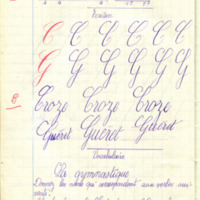 Écriture
C C C C C C C
G G G G G G G
8 Croze Croze Croze
Guéret Guéret Guéret
Vocabulaire
La gymnastique
Donnez les noms qui correspondent aux verbes sui-